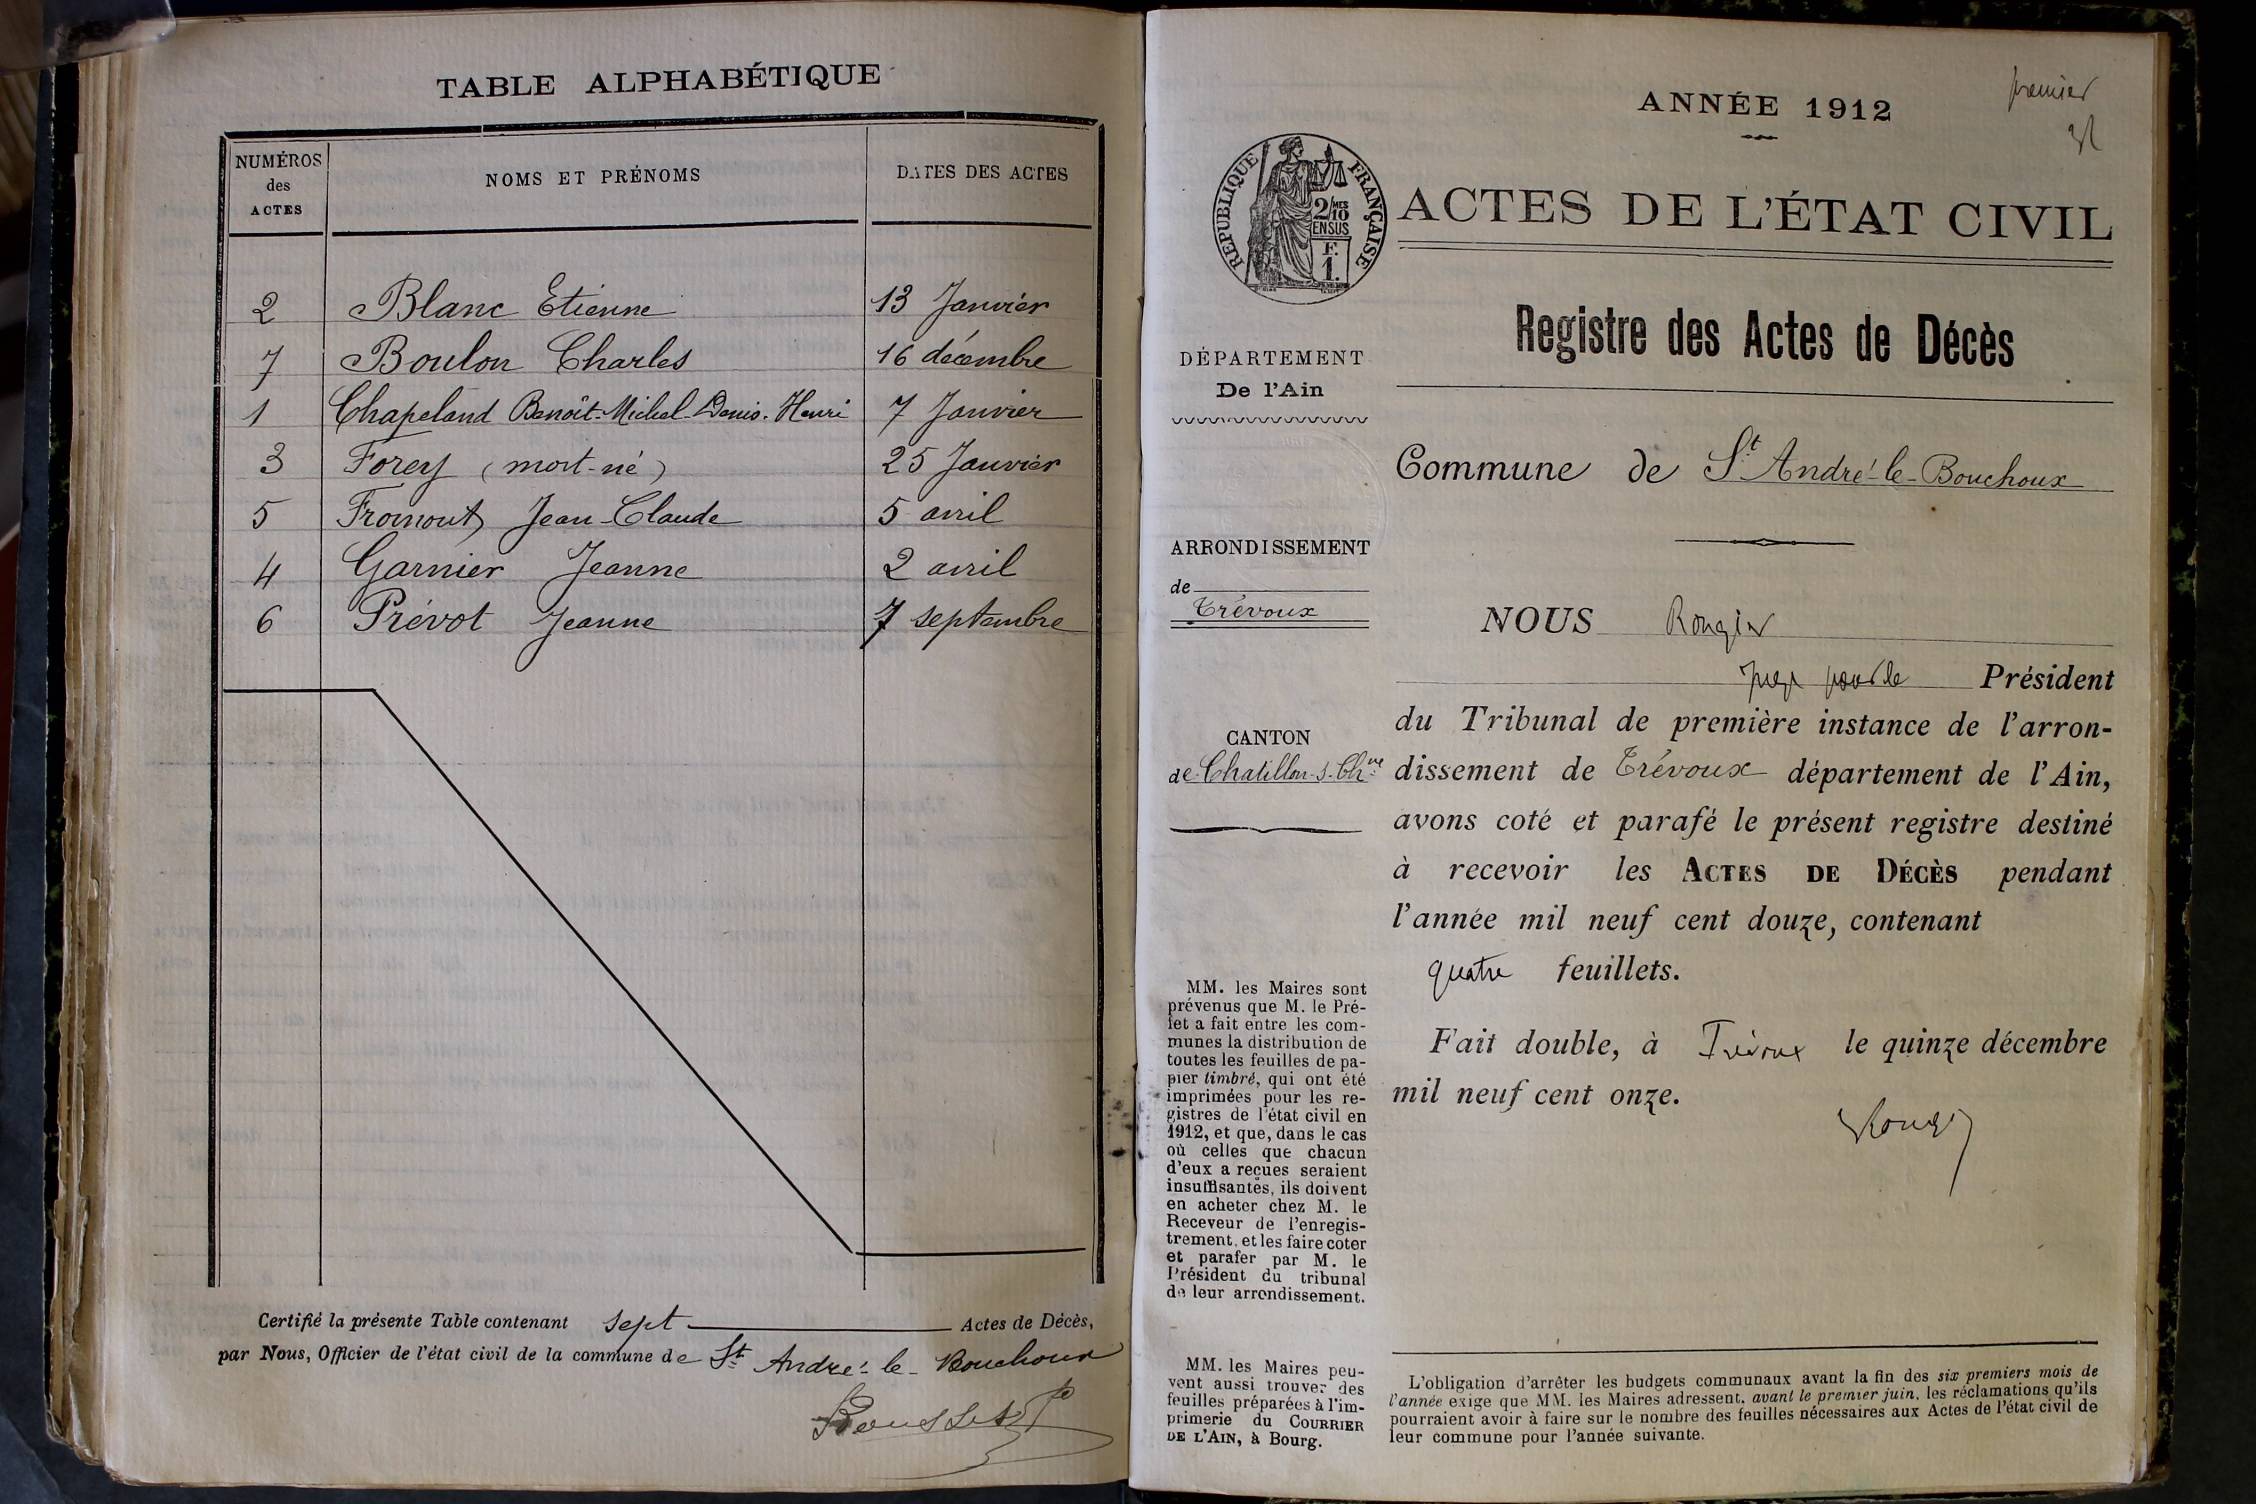 TABLE ALPHABÉTIQUE
NUMÉROS des ACTES
NOMS ET PRÉNOMS
DATES DES ACTES
2 Blanc Etienne 13 Janvier
7 Boulon Charles 16 décembre
1 Chapeland Benoît-Michel-Denis-Henri 7 Janvier
3 Forey (mort-né) 25 Janvier
5 Fromont Jean-Claude 5 avril
4 Garnier Jeanne 2 avril
6 Prévot Jeanne 7 septembre
Certifié la présente Table contenant sept Actes de Décès,
par Nous, Officier de l'état civil de la commune de St André-le-Bouchoux
premier
ANNÉE 1912
RÉPUBLIQUE FRANÇAISE
2/MES
10
EN SUS
F.
1.
ACTES DE L'ÉTAT CIVIL
Registre des Actes de Décès
DÉPARTEMENT
De l'Ain
Commune de St André-le-Bouchoux
ARRONDISSEMENT
de
Trévoux
CANTON
de Chatillon-s-Chne
NOUS Rougier
juge pour le Président
du Tribunal de première instance de l'arron-
dissement de Trévoux département de l'Ain,
avons coté et parafé le présent registre destiné
à recevoir les ACTES DE DÉCÈS pendant
l'année mil neuf cent douze, contenant
quatre feuillets.
Fait double, à Trévoux le quinze décembre
mil neuf cent onze.
MM. les Maires sont
prévenus que M. le Pré-
fet a fait entre les com-
munes la distribution de
toutes les feuilles de pa-
pier timbré, qui ont été
imprimées pour les re-
gistres de l'état civil en
1912, et que, dans le cas
où celles que chacun
d'eux a reçues seraient
insuffisantes, ils doivent
en acheter chez M. le
Receveur de l'enregis-
trement, et les faire coter
et parafer par M. le
Président du tribunal
de leur arrondissement.
MM. les Maires peu-
vent aussi trouver des
feuilles préparées à l'im-
primerie du COURRIER
DE L'AIN, à Bourg.
L'obligation d'arrêter les budgets communaux avant la fin des six premiers mois de
l'année exige que MM. les Maires adressent, avant le premier juin, les réclamations qu'ils
pourraient avoir à faire sur le nombre des feuilles nécessaires aux Actes de l'état civil de
leur commune pour l'année suivante.